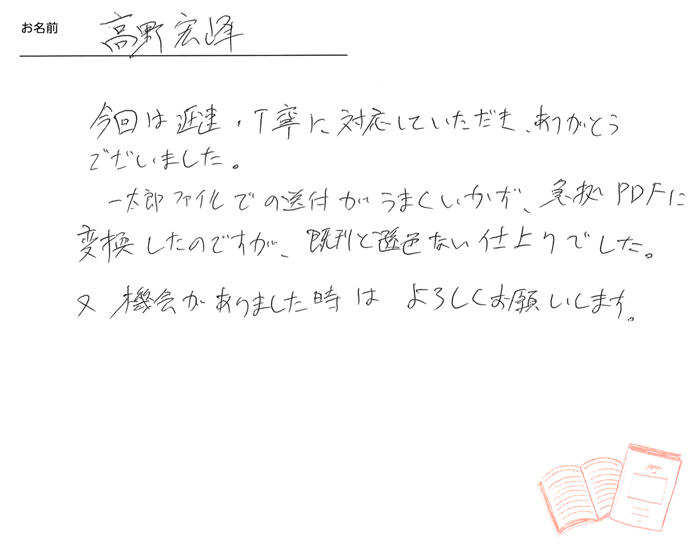 お名前 高野宏峰
今回は迅速・丁寧に対応していただき、ありがとう
ございました。
一太郎ファイルでの送付がうまくいかず、急拠PDFに
変換したのですが、既刊と遜色ない仕上りでした。
又機会がありました時は よろしくお願いします。